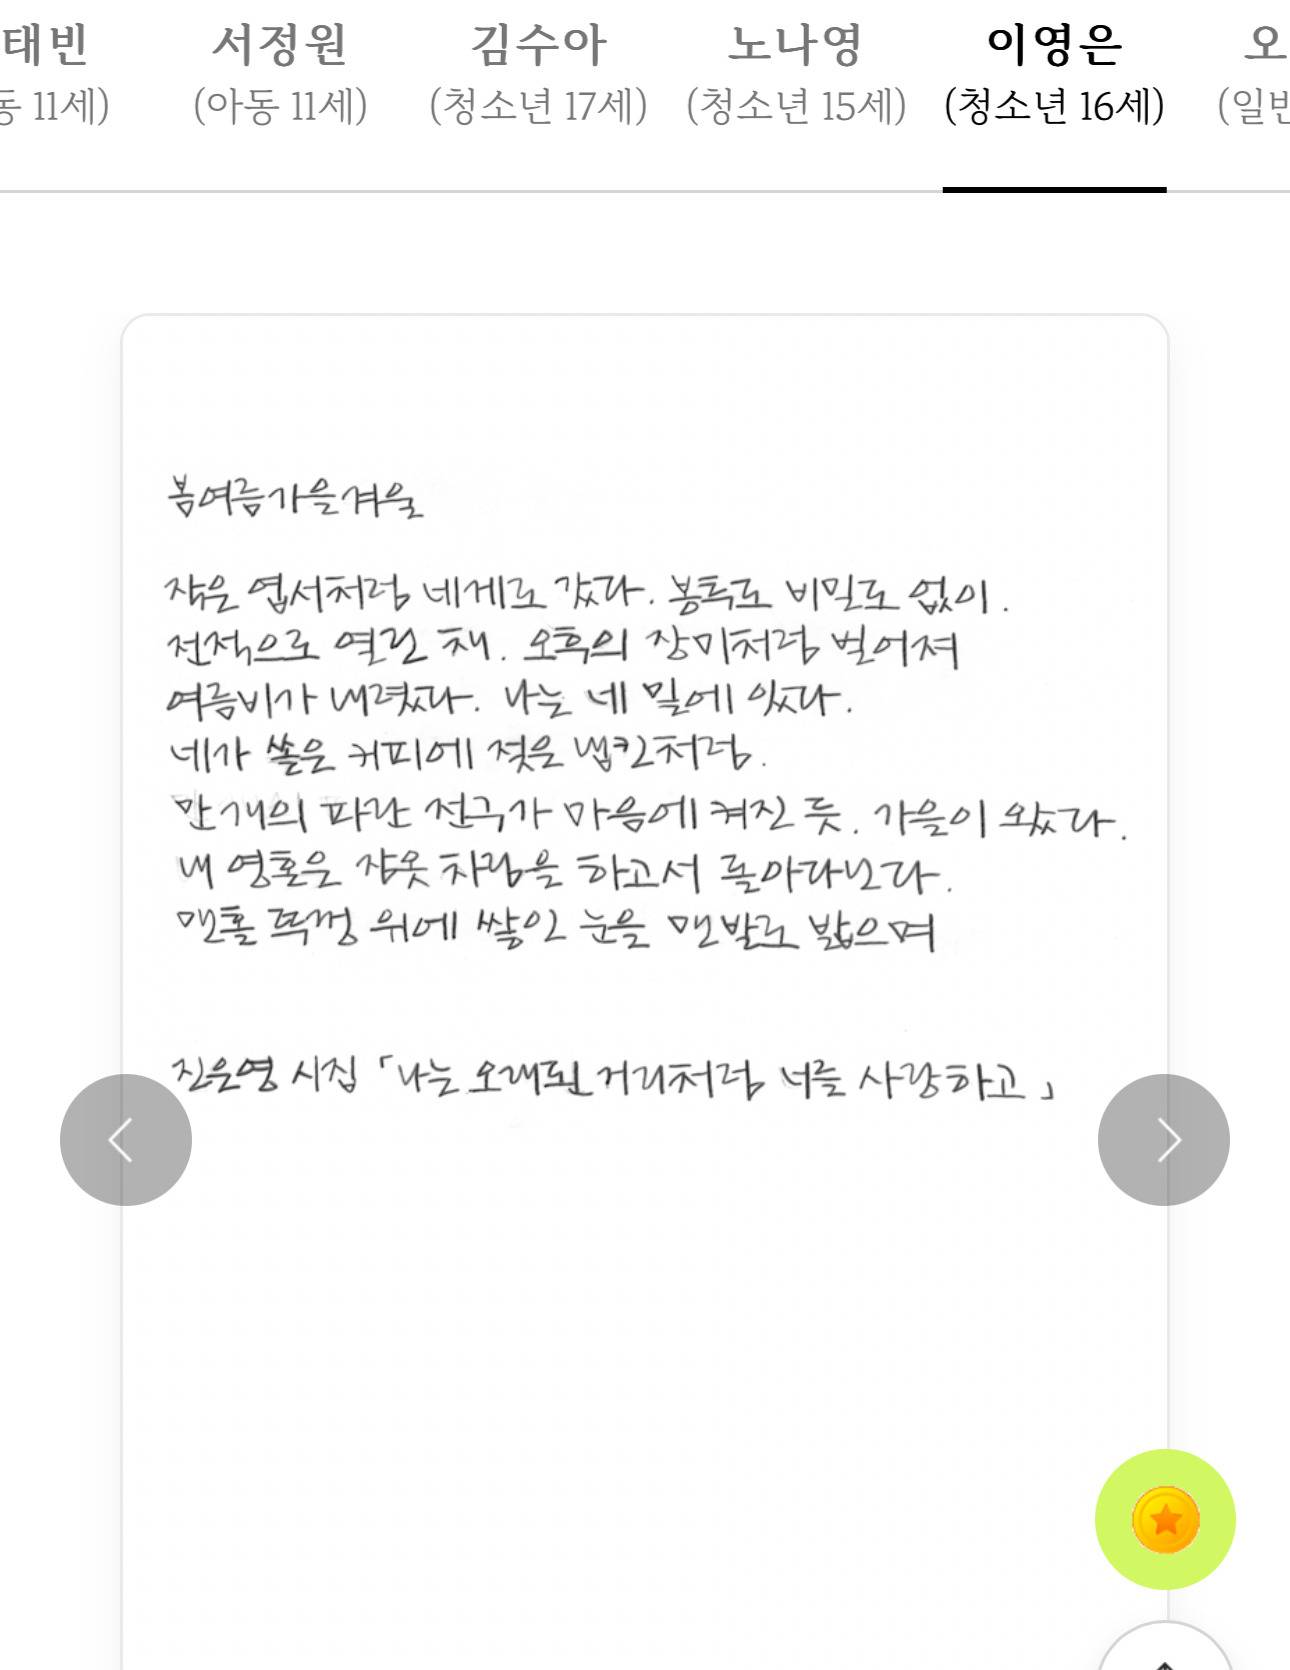 태빈 서정원 김수아 노나영 이영은 오
동 11세) (아동 11세) (청소년 17세) (청소년 15세) (청소년 16세) (일반
봄여름가을겨울
작은 엽서처럼 네게로 갔다. 봉투도 비밀도 없이.
전적으로 열린 채. 오후의 장미처럼 벌어져
여름비가 내렸다. 나는 네 밑에 있다.
네가 쏟은 커피에 젖은 냅킨처럼.
만 개의 파란 전구가 마음에 켜진 듯. 가을이 왔다.
내 영혼은 잠옷 차림을 하고서 돌아다닌다.
맨홀 뚜껑 위에 쌓인 눈을 맨발로 밟으며
진은영 시집 「나는 오래된 거리처럼 너를 사랑하고」